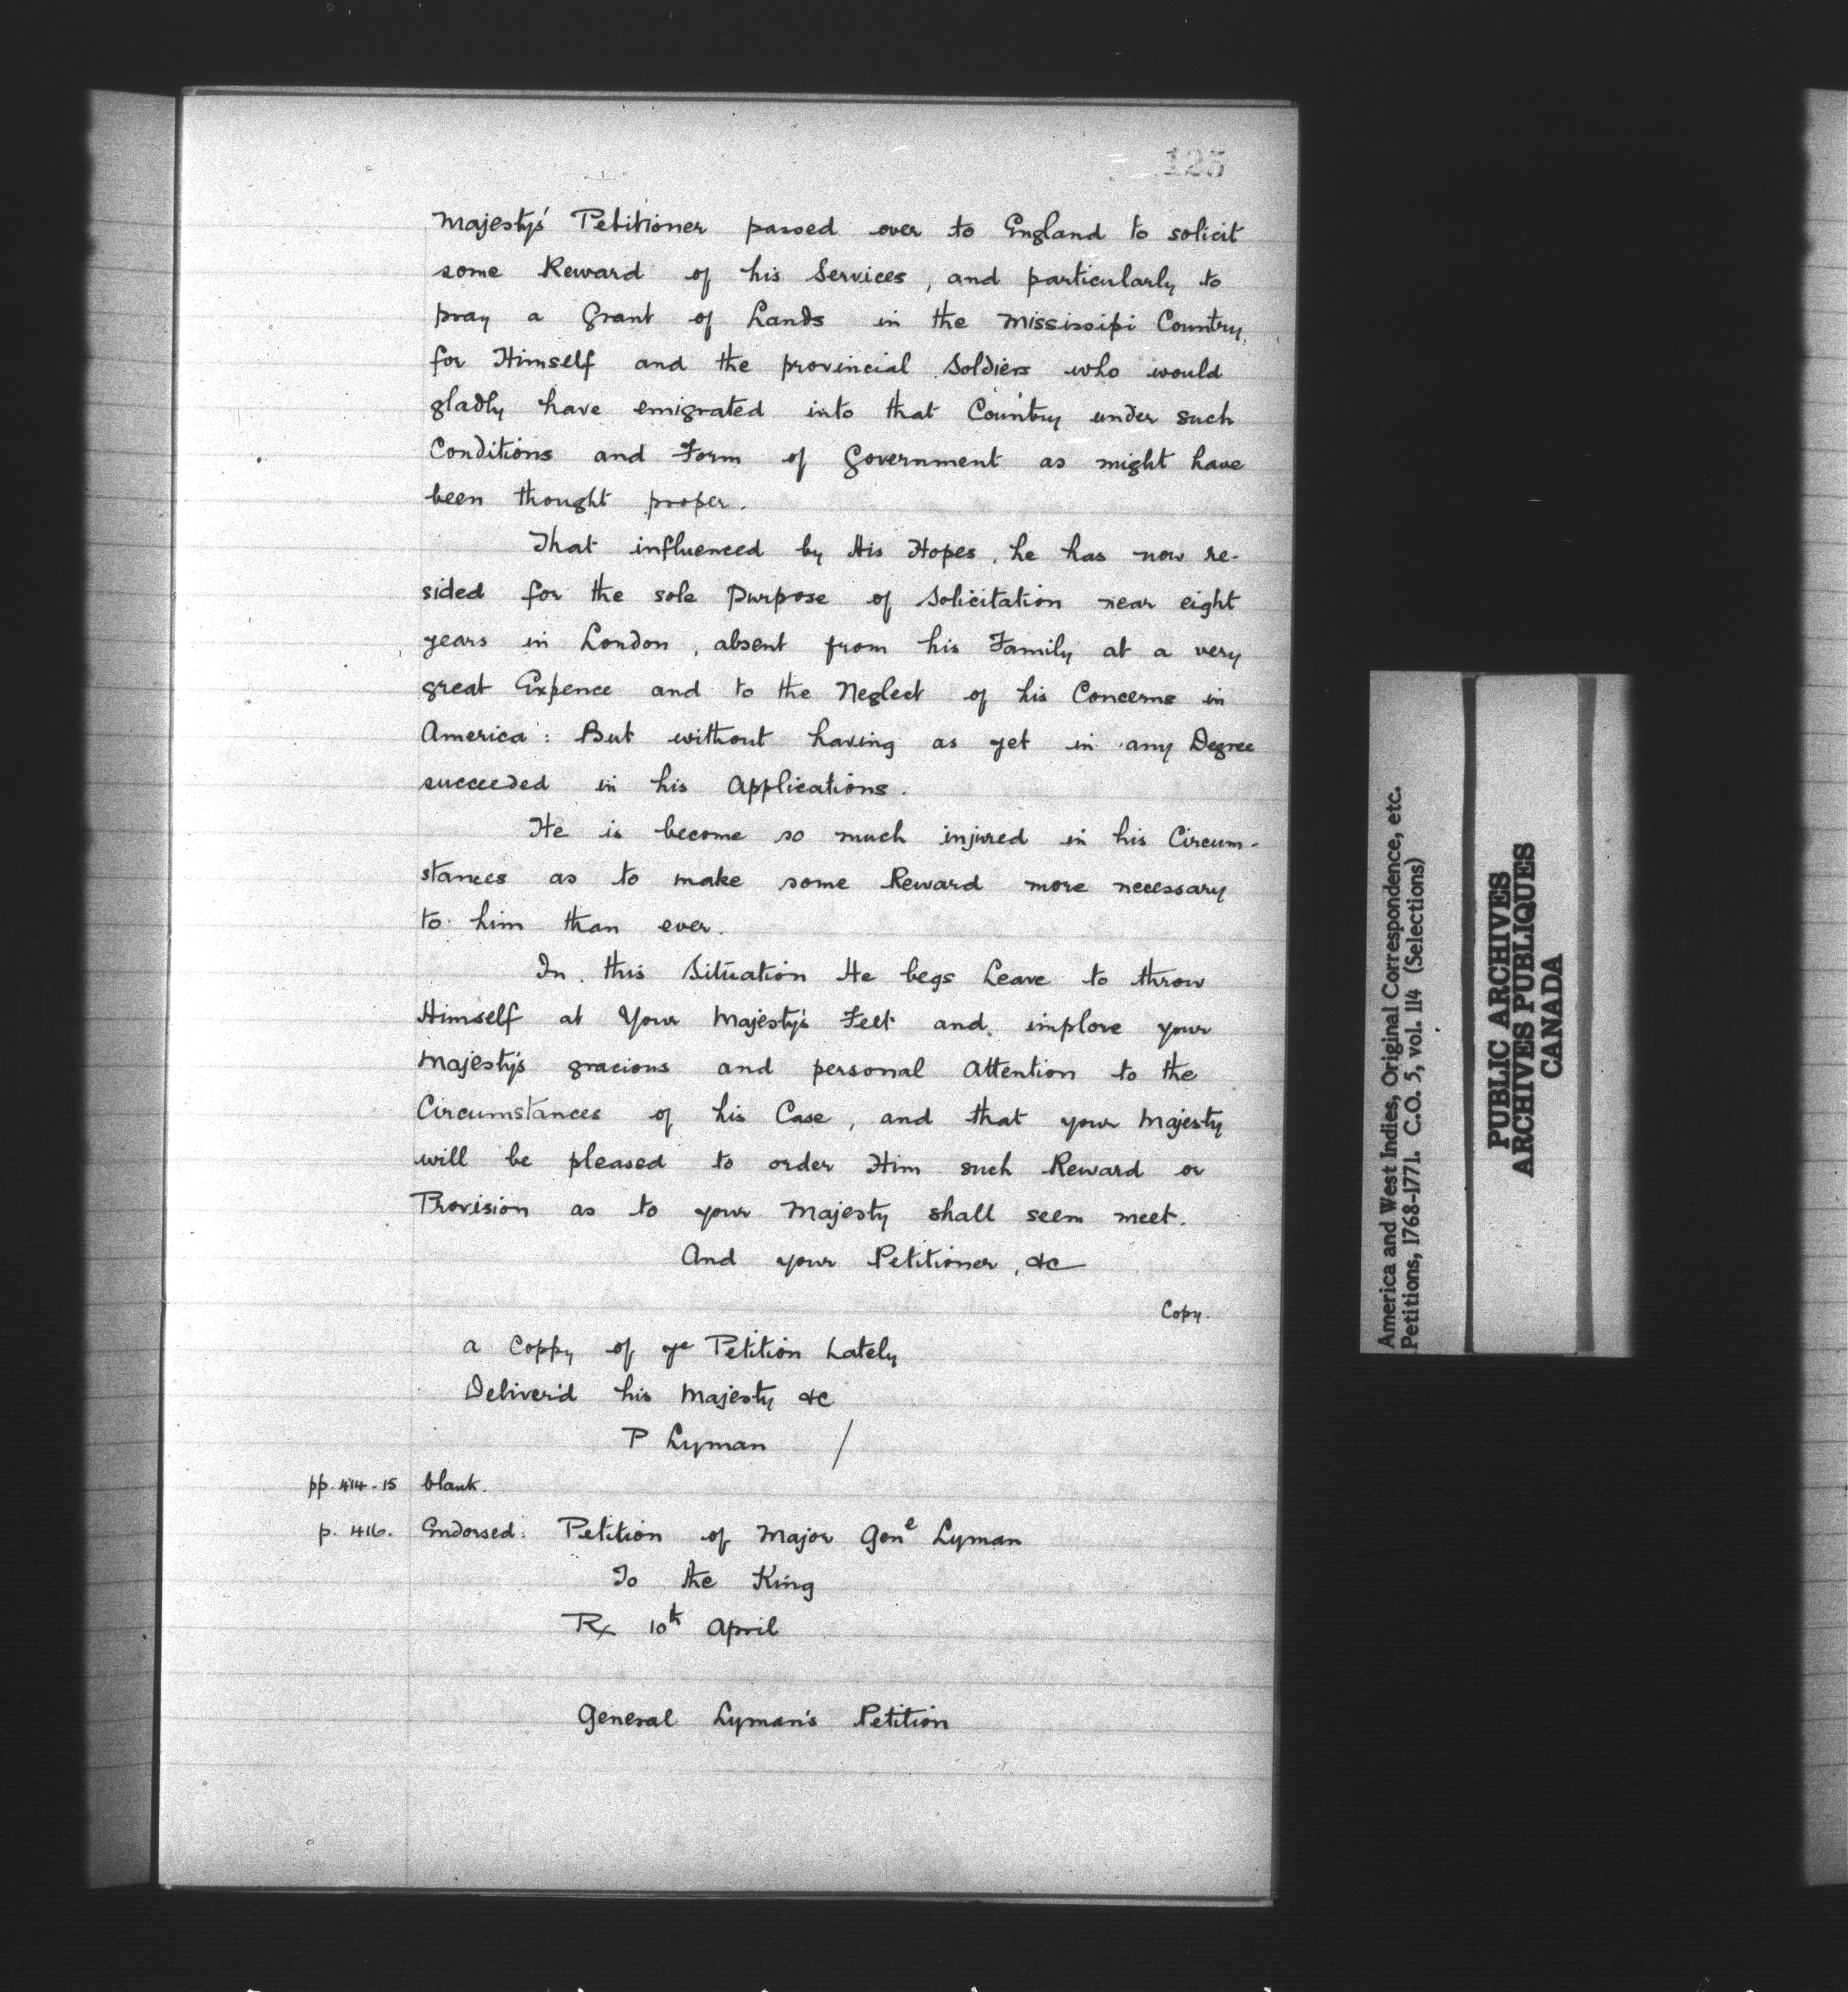 125
Majesty's Petitioner passed over to England to solicit
some Reward of his Services, and particularly to
pray a Grant of Lands in the Mississipi Country,
for Himself and the provincial Soldiers who would
gladly have emigrated into that Country under such
Conditions and Form of Government as might have
been thought proper.
That influenced by His Hopes, he has now re-
sided for the sole Purpose of Solicitation near eight
years in London, absent from his Family at a very
great Expence and to the Neglect of his Concerns in
America: But without having as yet in any Degree
succeeded in his Applications.
He is become so much injured in his Circum-
stances as to make some Reward more necessary
to him than ever.
In this Situation He begs Leave to throw
Himself at Your Majesty's Feet and implore your
Majesty's gracious and personal Attention to the
Circumstances of his Case, and that your Majesty
will be pleased to order Him such Reward or
Provision as to your Majesty shall seem meet.
And your Petitioner, &c
Copy.
a Coppy of ye Petition Lately
Deliver'd his Majesty &c
P Lyman /
pp. 414-15 blank.
p. 416. Endorsed: Petition of Major Gen^l Lyman
To the King
Rx 10th April
General Lyman's Petition
America and West Indies, Original Correspondence, etc.
Petitions, 1768-1771. C.O. 5, vol. 114 (Selections)
PUBLIC ARCHIVES
ARCHIVES PUBLIQUES
CANADA